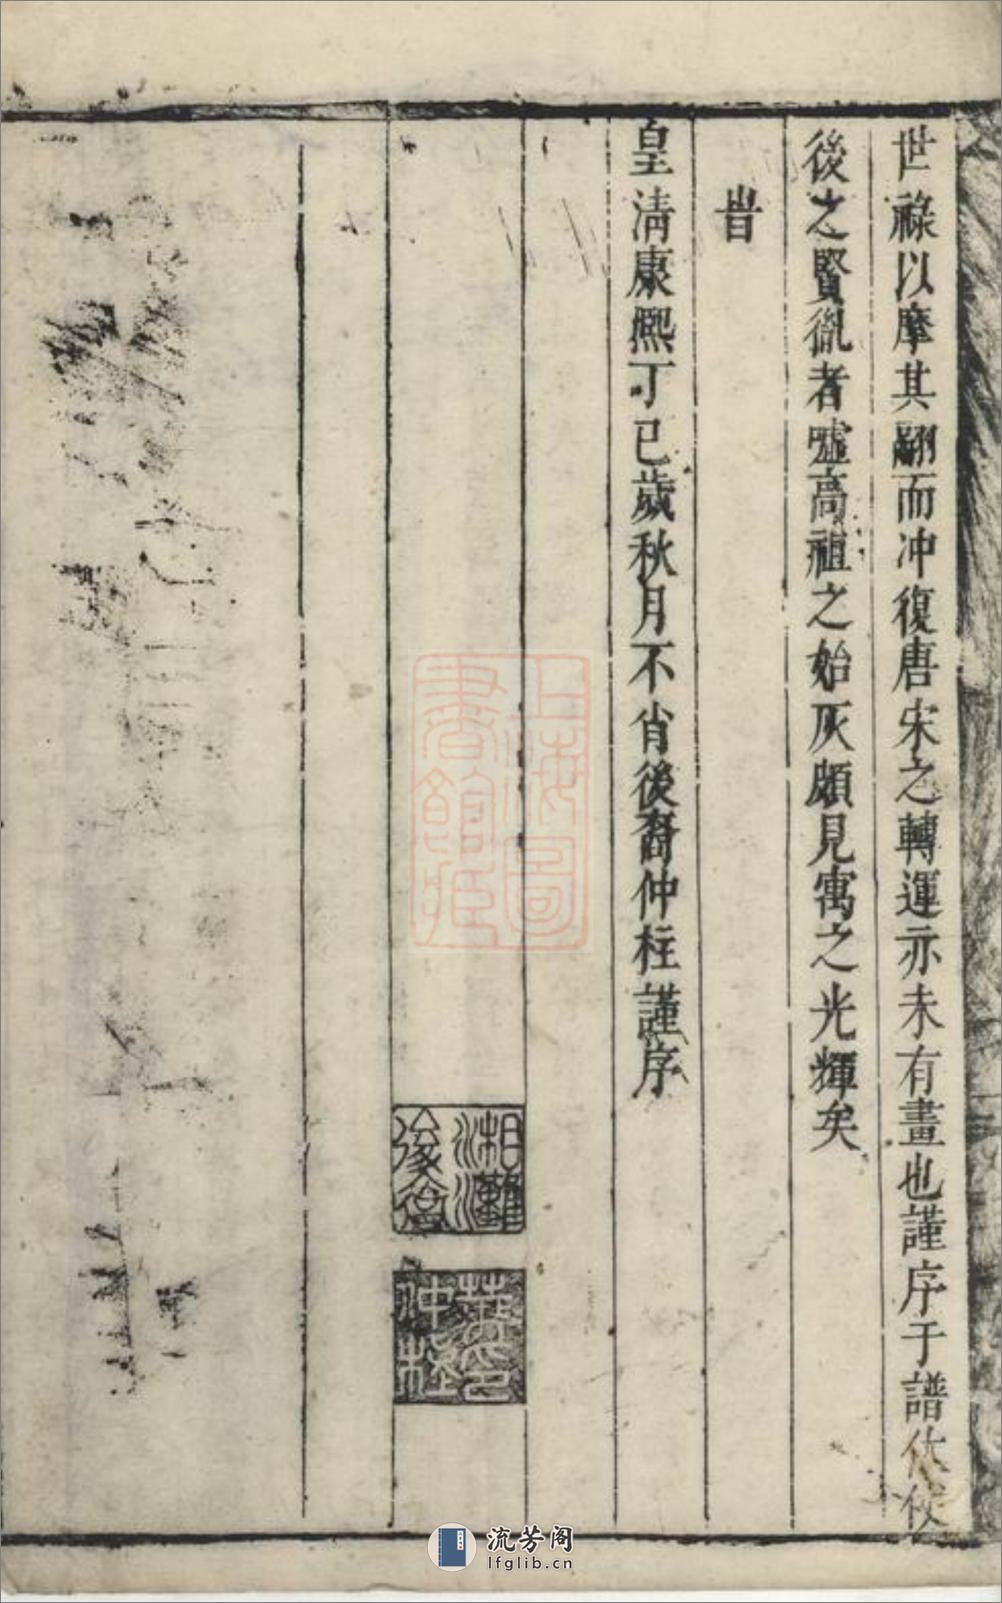 世祿以摩其翮而冲復唐宋之轉運亦未有畫也謹序于譜伏俟
後之賢胤者噓高祖之始灰頗見寓之光輝矣
旹
皇清康熙丁巳歲秋月不肖後裔仲柱謹序
仲柱
上海圖書館藏
流芳阁
lfglib.cn